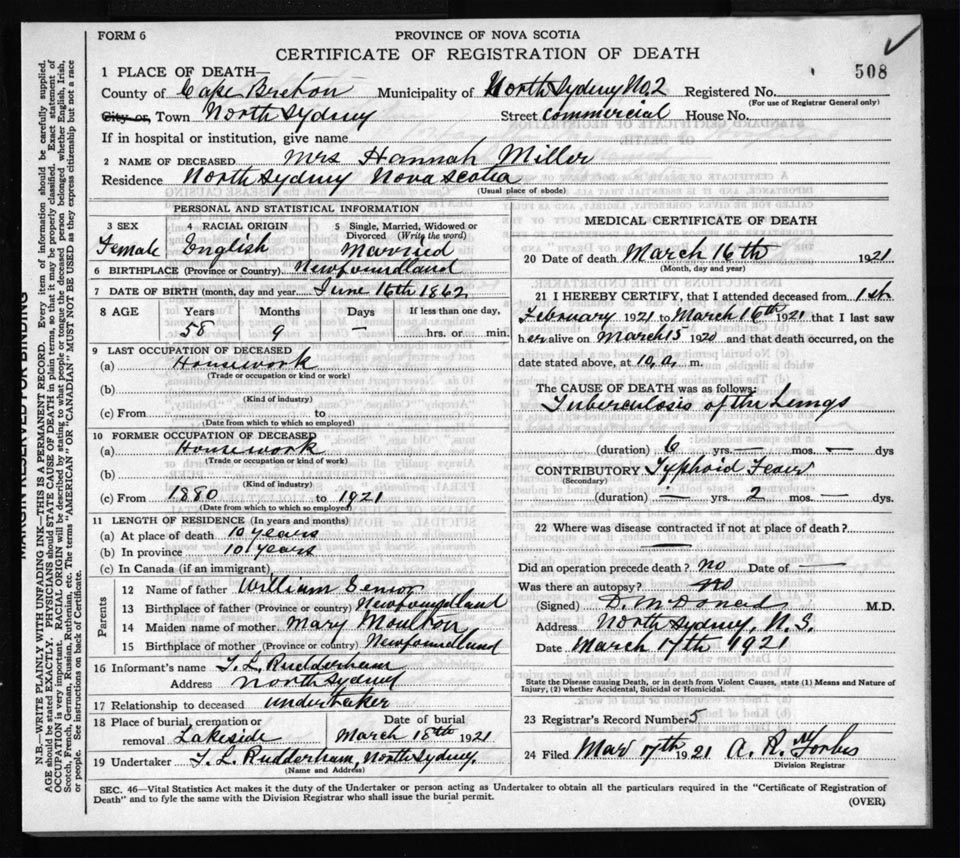 FORM 6
PROVINCE OF NOVA SCOTIA
CERTIFICATE OF REGISTRATION OF DEATH
508
1 PLACE OF DEATH—
County of Cape Breton Municipality of North Sydney No. 2 Registered No.
(For use of Registrar General only)
City or, Town North Sydney Street Commercial House No.
If in hospital or institution, give name
2 NAME OF DECEASED Mrs Hannah Miller
Residence North Sydney Nova Scotia
(Usual place of abode)
PERSONAL AND STATISTICAL INFORMATION
3 SEX 4 RACIAL ORIGIN 5 Single, Married, Widowed or Divorced (Write the word)
Female English Married
6 BIRTHPLACE (Province or Country) Newfoundland
7 DATE OF BIRTH (month, day and year June 16th 1862
8 AGE Years Months Days If less than one day,
58 9 — hrs. or min.
9 LAST OCCUPATION OF DECEASED
(a) Housework
(Trade or occupation or kind or work)
(b)
(Kind of industry)
(c) From to
(Date from which to which so employed)
10 FORMER OCCUPATION OF DECEASED
(a) Housework
(Trade or occupation or kind of work)
(b)
(Kind of industry)
(c) From 1880 to 1921
(Date from which to which so employed)
11 LENGTH OF RESIDENCE (In years and months)
(a) At place of death 10 years
(b) In province 10 years
(c) In Canada (if an immigrant)
Parents
12 Name of father William
13 Birthplace of father (Province or country) Newfoundland
14 Maiden name of mother Mary Moulton
15 Birthplace of mother (Province or country) Newfoundland
16 Informant's name T. L. Rudderham
Address North Sydney
17 Relationship to deceased undertaker
18 Place of burial, cremation or removal Lakeside
Date of burial March 18th 1921
19 Undertaker T. L. Rudderham, North Sydney.
(Name and Address)
MEDICAL CERTIFICATE OF DEATH
20 Date of death March 16th 1921
(Month, day and year)
21 I HEREBY CERTIFY, that I attended deceased from 1st
February 1921 to March 16th 1921 that I last saw
her alive on March 15 1920 and that death occurred, on the
date stated above, at 10, a, m.
The CAUSE OF DEATH was as follows:
Tuberculosis of the Lungs
(duration) 6 yrs. — mos. — dys
CONTRIBUTORY Typhoid Fever
(Secondary)
(duration) — yrs. 2 mos. — dys.
22 Where was disease contracted if not at place of death?
—
Did an operation precede death? no Date of —
Was there an autopsy? no
(Signed) D. McDonald M.D.
Address North Sydney, N. S.
Date March 17th 1921
State the Disease causing Death, or in death from Violent Causes, state (1) Means and Nature of
Injury, (2) whether Accidental, Suicidal or Homicidal.
23 Registrar's Record Number 5
24 Filed Mar 17th 1921 A. R. Forbes
Division Registrar
SEC. 46—Vital Statistics Act makes it the duty of the Undertaker or person acting as Undertaker to obtain all the particulars required in the "Certificate of Registration of
Death" and to fyle the same with the Division Registrar who shall issue the burial permit.
(OVER)
MARGIN RESERVED FOR BINDING
N.B.—WRITE PLAINLY WITH UNFADING INK—THIS IS A PERMANENT RECORD. Every item of information should be carefully supplied.
AGE should be stated EXACTLY. PHYSICIANS should STATE CAUSE OF DEATH in plain terms, so that it may be properly classified. Exact statement of
OCCUPATION is very important. RACIAL ORIGIN will be described by stating to what people or tongue the deceased person belonged, whether English, Irish,
Scotch, French, German, Russian, Ruthenian, etc. The terms "AMERICAN" OR "CANADIAN" MUST NOT BE USED as they express citizenship but not a race
or people. See instructions on back of Certificate.